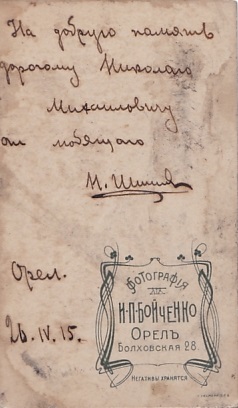 На добрую память
дорогому Николаю
Михаиловичу
от любящего
Орел.
26.IV.15.
ФОТОГРАФІЯ
И·П·БОЙЧЕНКО
ОРЕЛЪ
БОЛХОВСКАЯ 28.
НЕГАТИВЫ ХРАНЯТСЯ